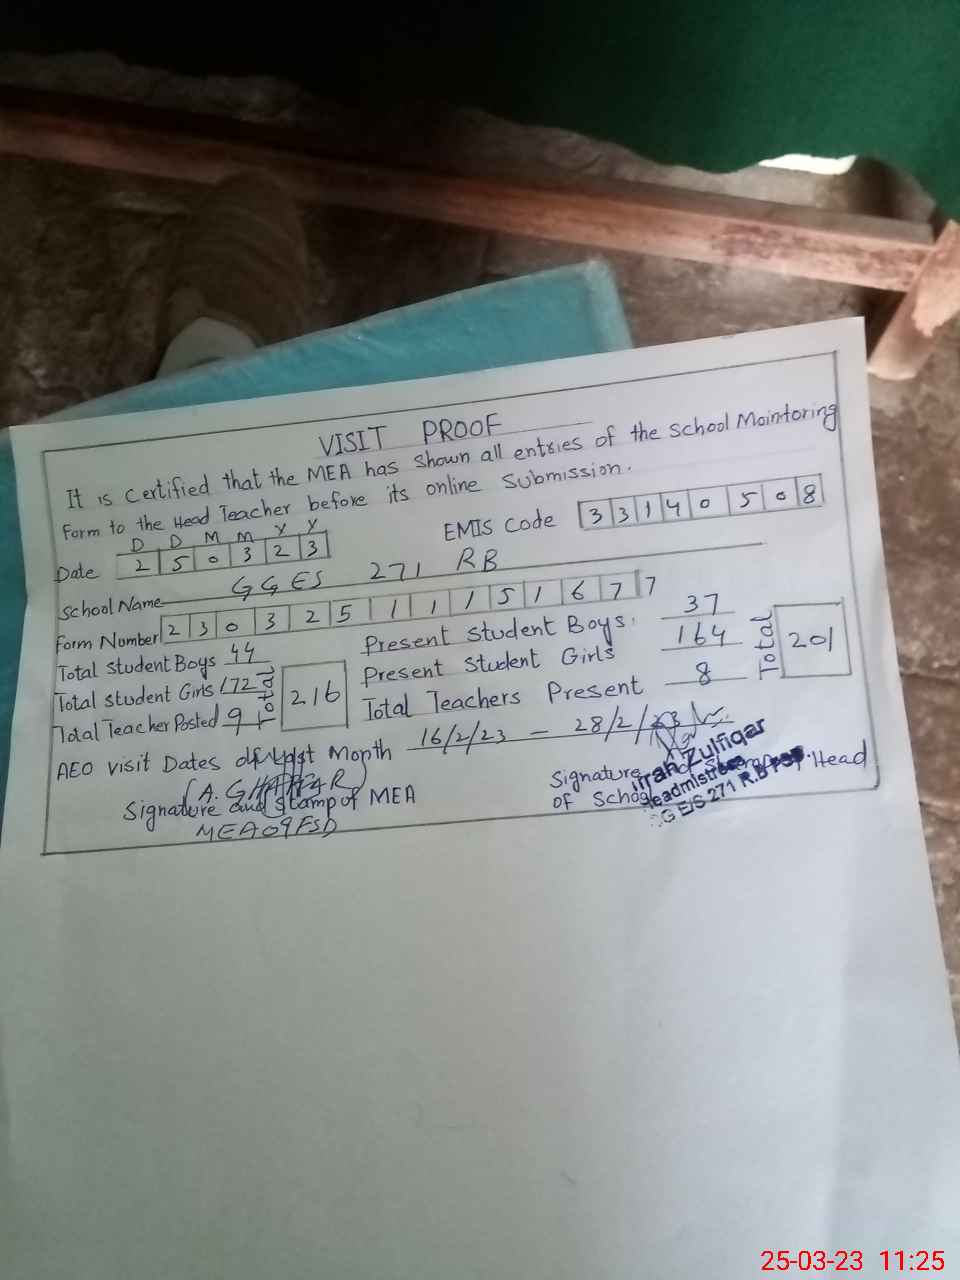 VISIT PROOF
It is certified that the MEA has shown all entries of the School Maintoring
Form to the Head Teacher before its online Submission.
D D M M Y Y
Date 2 5 0 3 2 3
EMIS Code 3 3 1 4 0 5 0 8
School Name GGES 271 RB
Form Number 2 3 0 3 2 5 1 1 1 5 1 6 7 7
Total Student Boys 44
Total Student Girls 172
Total Teacher Posted 9
Total 216
Present Student Boys. 37
Present Student Girls 164
Total Teachers Present 8
Total 201
AEO visit Dates of Last Month 16/2/23 - 28/2/23
(A. GHAFFAR)
Signature and Stamp of MEA
MEA09FSD
Signature and Stamp of Head
of School
Zulfiqar
eadmistress
G E/S 271 R.B
25-03-23 11:25